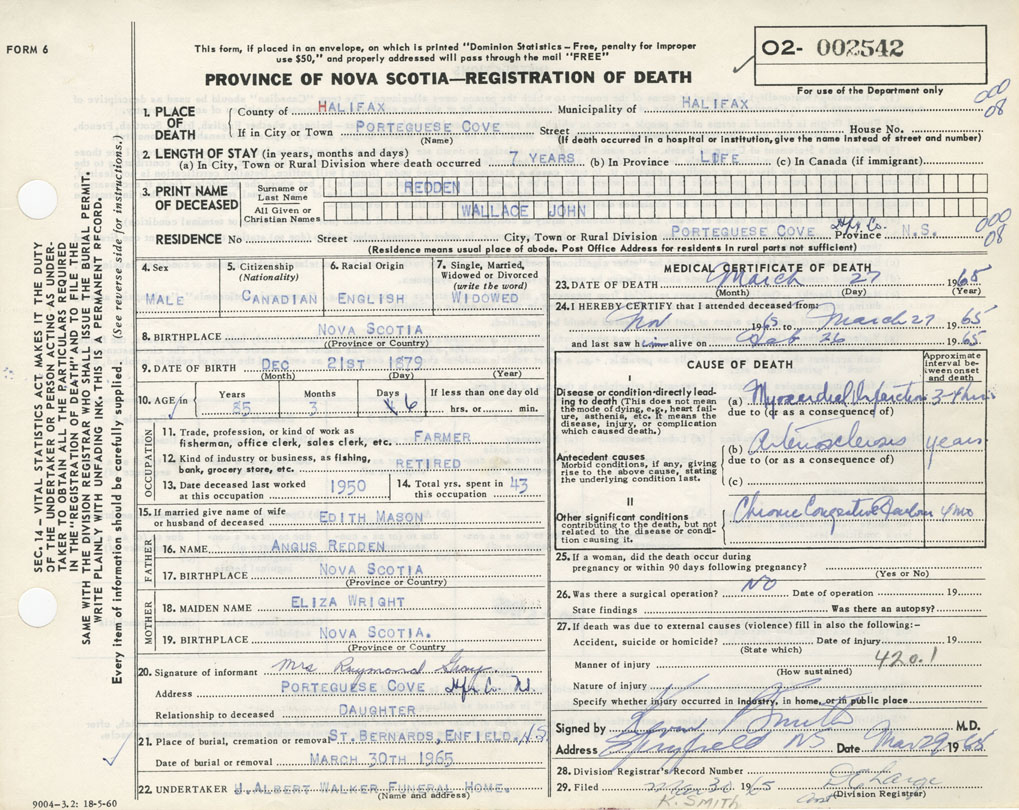 FORM 6
This form, if placed in an envelope, on which is printed "Dominion Statistics – Free, penalty for improper
use $50," and properly addressed will pass through the mail "FREE"
PROVINCE OF NOVA SCOTIA—REGISTRATION OF DEATH
O2- 002542
For use of the Department only
000
08
1. PLACE OF DEATH
County of HALIFAX Municipality of HALIFAX
If in City or Town PORTEGUESE COVE Street House No.
(Name) (If death occurred in a hospital or institution, give the name instead of street and number)
2. LENGTH OF STAY (in years, months and days)
(a) In City, Town or Rural Division where death occurred 7 YEARS (b) In Province LIFE (c) In Canada (if immigrant)
3. PRINT NAME OF DECEASED
Surname or Last Name REDDEN
All Given or Christian Names WALLACE JOHN
000
08
RESIDENCE No Street City, Town or Rural Division PORTEGUESE COVE Hfx. Co. Province N.S.
(Residence means usual place of abode. Post Office Address for residents in rural parts not sufficient)
4. Sex MALE
5. Citizenship (Nationality) CANADIAN
6. Racial Origin ENGLISH
7. Single, Married, Widowed or Divorced (write the word) WIDOWED
8. BIRTHPLACE NOVA SCOTIA
((Province or Country)
9. DATE OF BIRTH DEC 21ST 1879
(Month) (Day) (Year)
10. AGE in Years 85 Months 3 Days 6 If less than one day old hrs. or min.
OCCUPATION
11. Trade, profession, or kind of work as fisherman, office clerk, sales clerk, etc. FARMER
12. Kind of industry or business, as fishing, bank, grocery store, etc. RETIRED
13. Date deceased last worked at this occupation 1950
14. Total yrs. spent in this occupation 43
15. If married give name of wife or husband of deceased EDITH MASON
FATHER
16. NAME ANGUS REDDEN
17. BIRTHPLACE NOVA SCOTIA
(Province or Country)
MOTHER
18. MAIDEN NAME ELIZA WRIGHT
19. BIRTHPLACE NOVA SCOTIA.
(Province or Country
20. Signature of informant Mrs Raymond Gray
Address PORTEGUESE COVE Hfx. Co. NS.
Relationship to deceased DAUGHTER
21. Place of burial, cremation or removal ST. BERNARDS, ENFIELD. NS
Date of burial or removal MARCH 30TH 1965
22. UNDERTAKER J. ALBERT WALKER FUNERAL HOME.
(Name and address)
9004-3.2: 18-5-60
MEDICAL CERTIFICATE OF DEATH
23. DATE OF DEATH March 27 1965
(Month) (Day) (Year)
24. I HEREBY CERTIFY that I attended deceased from:
Nov 196 to March 27 1965
and last saw him alive on 26 1965
CAUSE OF DEATH
Approximate interval between onset and death
I
Disease or condition directly leading to death (This does not mean the mode of dying, e.g., heart failure, asthenia, etc. It means the disease, injury, or complication which caused death.)
(a) Myocardial Infarction 3-4 hrs
due to (or as a consequence of)
Antecedent causes
Morbid conditions, if any, giving rise to the above cause, stating the underlying condition last.
(b) Arteriosclerosis years
due to (or as a consequence of)
(c)
II
Other significant conditions contributing to the death, but not related to the disease or condition causing it.
Chronic Congestive Failure 4 mo
25. If a woman, did the death occur during
pregnancy or within 90 days following pregnancy?
(Yes or No)
26. Was there a surgical operation? NO Date of operation 19
State findings Was there an autopsy?
27. If death was due to external causes (violence) fill in also the following:–
Accident, suicide or homicide? Date of injury 19
(State which)
Manner of injury 420.1
(How sustained)
Nature of injury
Specify whether injury occurred in industry, in home, or in public place
Signed by Smith M.D.
Address Spryfield NS Date Mar 29 1965
28. Division Registrar's Record Number
29. Filed 30 1965
(Division Registrar)
K. SMITH
SEC. 14 – VITAL STATISTICS ACT MAKES IT THE DUTY
OF THE UNDERTAKER OR PERSON ACTING AS UNDER-
TAKER TO OBTAIN ALL THE PARTICULARS REQUIRED
IN THE "REGISTRATION OF DEATH" AND TO FILE THE
SAME WITH THE DIVISION REGISTRAR WHO SHALL ISSUE THE BURIAL PERMIT.
WRITE PLAINLY WITH UNFADING INK. THIS IS A PERMANENT RECORD.
Every item of information should be carefully supplied. (See reverse side for instructions.)